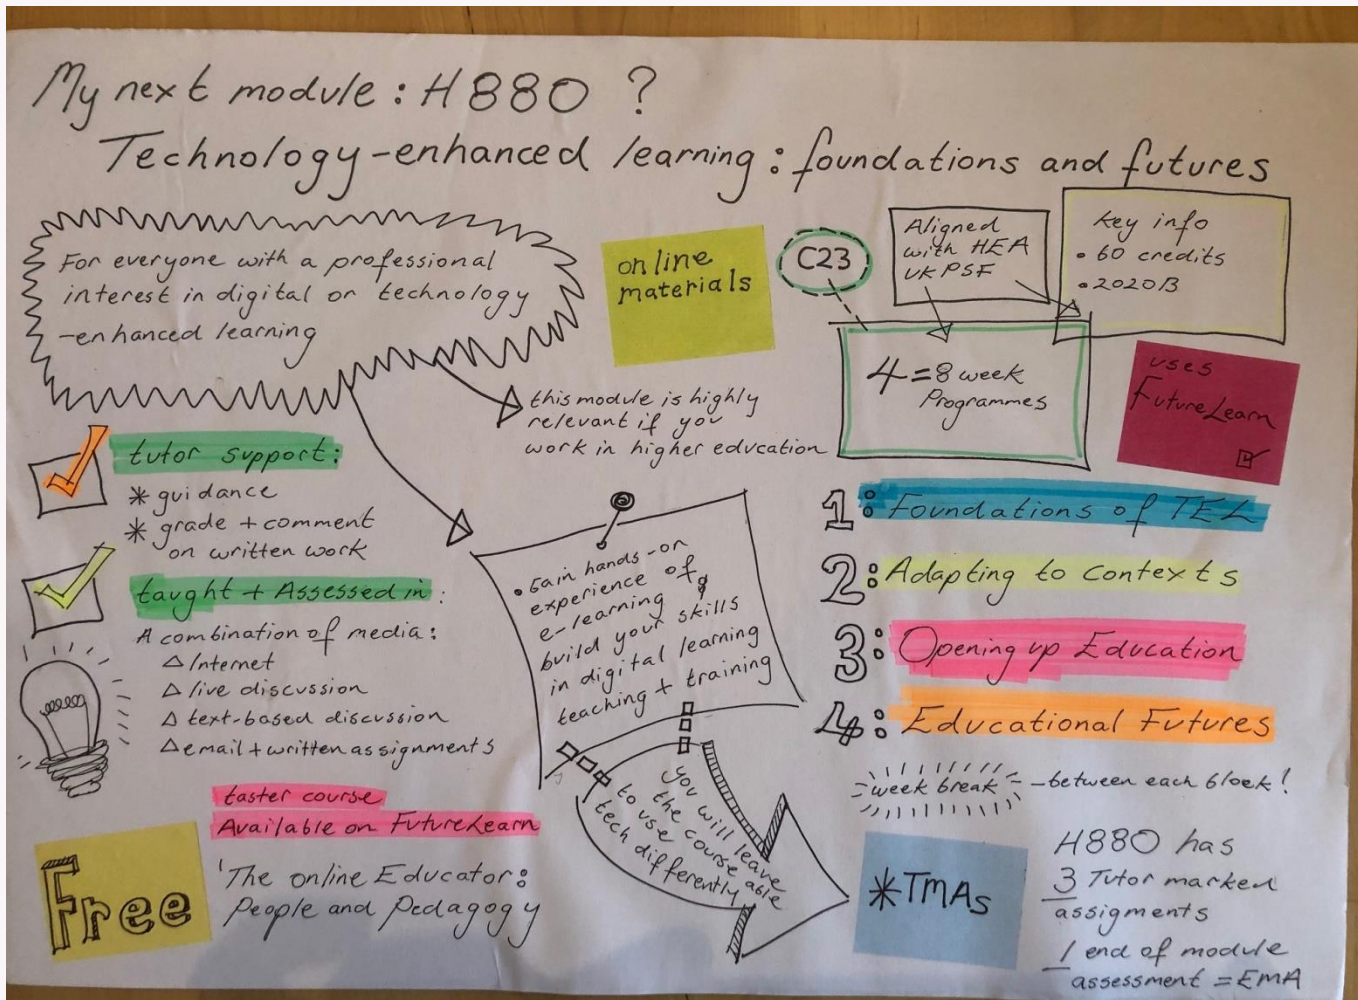 My next module : H880 ?
Technology-enhanced learning : foundations and futures
For everyone with a professional
interest in digital or technology
-enhanced learning
online
materials
C23
Aligned
with HEA
UKPSF
Key info
• 60 credits
• 2020B
4 = 8 week
Programmes
uses
FutureLearn
this module is highly
relevant if you
work in higher education
tutor support:
* guidance
* grade + comment
on written work
taught + Assessed in :
A combination of media :
△ Internet
△ live discussion
△ text-based discussion
△ email + written assignments
• Gain hands-on
experience of
e-learning &
build your skills
in digital learning
teaching + training
you will leave
the course able
to use
tech differently
1: Foundations of TEL
2: Adapting to contexts
3: Opening up Education
4: Educational Futures
week break - between each block!
taster course
Available on FutureLearn
Free
'The online Educator:
People and Pedagogy
*TMAs
H880 has
3 Tutor marked
assigments
1 end of module
assessment = EMA